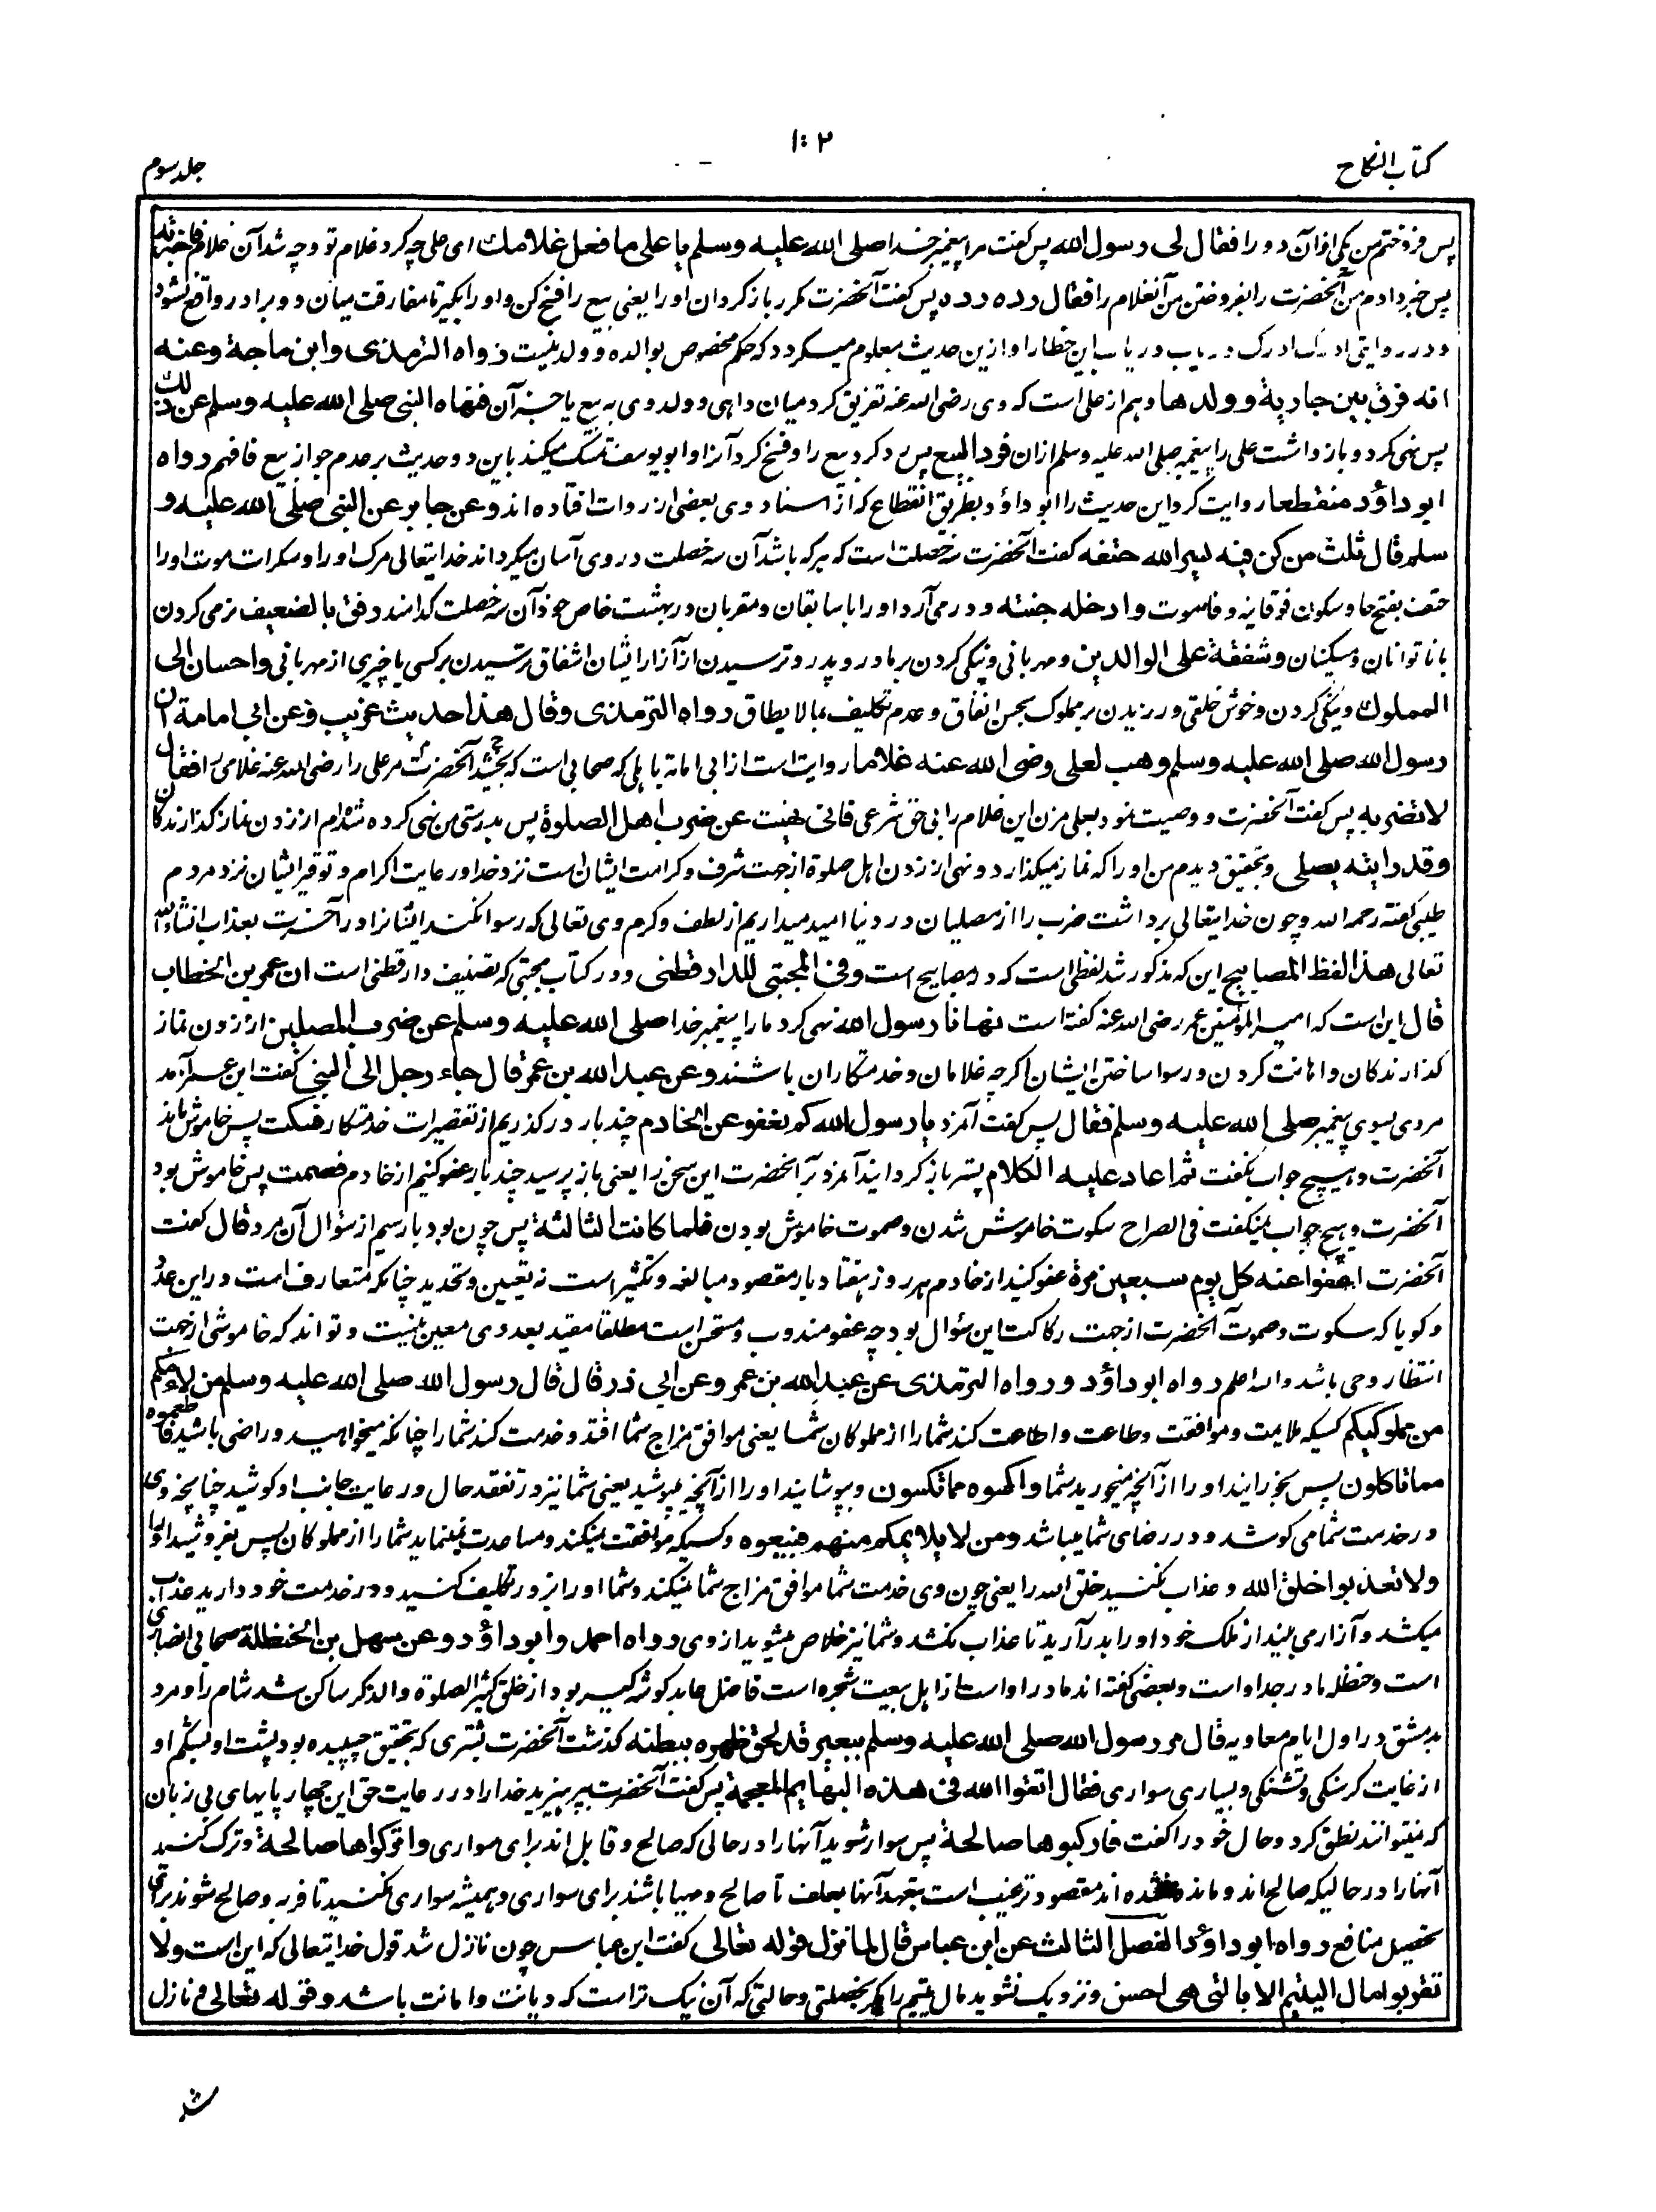 کتاب النکاح
۱۰۲
جلد سوم
پس فروختم من یکی ازان دو را فقال لی رسول الله پس گفت مرا پیغمبر خدا صلی الله علیه وسلم یا علی ما فعل غلامك ای علی چه کرد غلام تو و چه شد آن غلام فاخبرته
پس خبر دادم من آنحضرت را بفروختن من آنغلام را فقال رده رده پس گفت آنحضرت مکرر باز گردان او را یعنی بیع را فسخ کن و او را بگیر تا مفارقت میان دو برادر واقع نشود
و در روایتی ادرک ادرک دریاب دریاب این خطا را و ازین حدیث معلوم میگردد که حکم مخصوص بوالده و ولد نیست رواه الترمذی وابن ماجة وعنه
انه فرق بین جاریة وولدها و هم از علی است که وی رضی الله عنه تفریق کرد میان داهی و ولد وی به بیع یا جز آن فنهاه النبی صلی الله علیه وسلم عن ذلك
پس نهی کرد و بازداشت علی را پیغمبر صلی الله علیه وسلم ازان فرد البیع پس رد کرد بیع را و فسخ کرد آنرا و ابو یوسف تمسک میکند باین دو حدیث بر عدم جواز بیع فافهم رواه
ابو داؤد منقطعا روایت کرد این حدیث را ابو داؤد بطریق انقطاع که از اسناد وی بعضی از روات افتاده اند وعن جابر عن النبی صلی الله علیه و
سلم قال ثلث من کن فیه یسر الله حتفه گفت آنحضرت سه خصلت است که هر که باشد آن سه خصلت در وی آسان میگرداند خدایتعالی مرگ او را و سکرات موت او را
حتف بفتح حا و سکون فوقانیه و فا موت وادخله جنته و در می آرد او را با سابقان و مقربان در بهشت خاص خود آن سه خصلت کدامند رفق بالضعیف نرمی کردن
با ناتوانان و مسکینان وشفقة علی الوالدین و مهربانی و نیکی کردن بر مادر و پدر و ترسیدن از آزار ایشان اشفاق ترسیدن بر کسی یا چیزی از مهربانی واحسان الی
المملوك و نیکی کردن و خوش خلقی ورزیدن بر مملوک بحسن انفاق و عدم تکلیف بما لا یطاق رواه الترمذی وقال هذا حدیث غریب وعن ابی امامة ان
رسول الله صلی الله علیه وسلم وهب لعلی رضی الله عنه غلاما روایت است از ابی امامه باهلی که صحابی است که بخشید آنحضرت مر علی را رضی الله عنه غلامی را فقال
لا تضربه پس گفت آنحضرت و وصیت نمود بعلی مزن این غلام را بی حق شرعی فانی نهیت عن ضرب اهل الصلوة پس بدرستی من نهی کرده شده ام از زدن نماز گذارندگان
وقد رایته یصلی و بتحقیق دیدم من او را که نماز میگذارد و نهی از زدن اهل صلوة از جهت شرف و کرامت ایشان است نزد خدا و رعایت اکرام و توقیر ایشان نزد مردم
طیبی گفته رحمه الله و چون خدایتعالی برداشت ضرب را از مصلیان در دنیا امید میداریم از لطف و کرم وی تعالی که رسوا نکند ایشانرا در آخرت بعذاب انشاءالله
تعالی هذا لفظ المصابیح این که مذکور شد لفظی است که در مصابیح است وفی المجتبی للدارقطنی و در کتاب مجتبی که تصنیف دارقطنی است ان عمر بن الخطاب
قال این است که امیرالمؤمنین عمر رضی الله عنه گفته است نهانا رسول الله نهی کرد ما را پیغمبر خدا صلی الله علیه وسلم عن ضرب المصلین از زدن نماز
گذارندگان و اهانت کردن و رسوا ساختن ایشان اگرچه غلامان و خدمتگاران باشند وعن عبد الله بن عمر قال جاء رجل الی النبی گفت ابن عمر آمد
مردی بسوی پیغمبر صلی الله علیه وسلم فقال پس گفت آنمرد یا رسول الله کم نعفو عن الخادم چند بار درگذریم از تقصیرات خدمتگار فسکت پس خاموش ماند
آنحضرت و هیچ جواب نگفت ثم اعاد علیه الکلام پستر باز گردانید آنمرد بر آنحضرت این سخن را یعنی باز پرسید چند بار عفو کنیم از خادم فصمت پس خاموش بود
آنحضرت و هیچ جواب نمیگفت فی الصراح سکوت خاموش شدن و صموت خاموش بودن فلما کانت الثالثة پس چون بود بار سیم از سؤال آن مرد قال گفت
آنحضرت اعفوا عنه کل یوم سبعین مرة عفو کنید از خادم هر روز هفتاد بار مقصود مبالغه و تکثیر است نه تعیین و تحدید چنانکه متعارف است در این عدد
و گویا که سکوت و صموت آنحضرت از جهت رکاکت این سؤال بود چه عفو مندوب و مستحسن است مطلقا مقید بعددی معین نیست و تواند که خاموشی از جهت
انتظار وحی باشد والله اعلم رواه ابو داؤد ورواه الترمذی عن عبد الله بن عمرو وعن ابی ذر قال قال رسول الله صلی الله علیه وسلم من لاءمکم
من مملوکیکم کسیکه ملایمت و موافقت و طاعت و اطاعت کند شما را از مملوکان شما یعنی موافق مزاج شما افتد و خدمت کند شما را چنانکه میخواهید و راضی باشید فاطعموه
مما تاکلون پس بخورانید او را از آنچه میخورید شما واکسوه مما تکسون و بپوشانید او را از آنچه میپوشید یعنی شما نیز در تفقد حال و رعایت جانب او کوشید چنانچه وی
در خدمت شما می کوشد و در رضای شما میباشد ومن لا یلایمکم منهم فبیعوه و کسیکه موافقت نمیکند و مساعدت نمینماید شما را از مملوکان پس بفروشید او را
ولا تعذبوا خلق الله و عذاب نکنید خلق الله را یعنی چون وی خدمت شما موافق مزاج شما نمیکند و شما او را بزور تکلیف کنید و در خدمت خود دارید عذاب
میکشد و آزار می بیند از ملک خود او را بدر آرید تا عذاب نکشد و شما نیز خلاص میشوید از وی رواه احمد وابو داؤد وعن سهل بن الحنظلة صحابی انصاری
است و حنظله مادر جد او است و بعضی گفته اند مادر او است از اهل بیعت شجره است فاضل عابد گوشه گیر بود از خلق کثیر الصلوة والذکر ساکن شد شام را و مرد
بدمشق در اول ایام معاویه قال مر رسول الله صلی الله علیه وسلم ببعیر قد لحق ظهره ببطنه گذشت آنحضرت بشتری که بتحقیق چسپیده بود پشت او بشکم او
از غایت گرسنگی و تشنگی و بسیاری سواری فقال اتقوا الله فی هذه البهایم المعجمة پس گفت آنحضرت بپرهیزید خدا را در رعایت حق این چهارپایهای بی زبان
که نمیتوانند نطق کرد و حال خود را گفت فارکبوها صالحة پس سوار شوید آنها را در حالی که صالح و قابل اند برای سواری واترکوها صالحة و ترک کنید
آنها را در حالیکه صالح اند و مانده نشده اند مقصود ترغیب است بتعهد آنها بعلف تا صالح و مهیا باشند برای سواری و همیشه سواری نکنید تا فربه و صالح شوند برای
تحصیل منافع رواه ابو داؤد الفصل الثالث عن ابن عباس قال لما نزل قوله تعالی گفت ابن عباس چون نازل شد قول خدایتعالی که این است ولا
تقربوا مال الیتیم الا بالتی هی احسن و نزدیک نشوید مال یتیم را مگر بخصلتی و حالتی که آن نیک تر است که دیانت و امانت باشد وقوله تعالی و نازل
شد